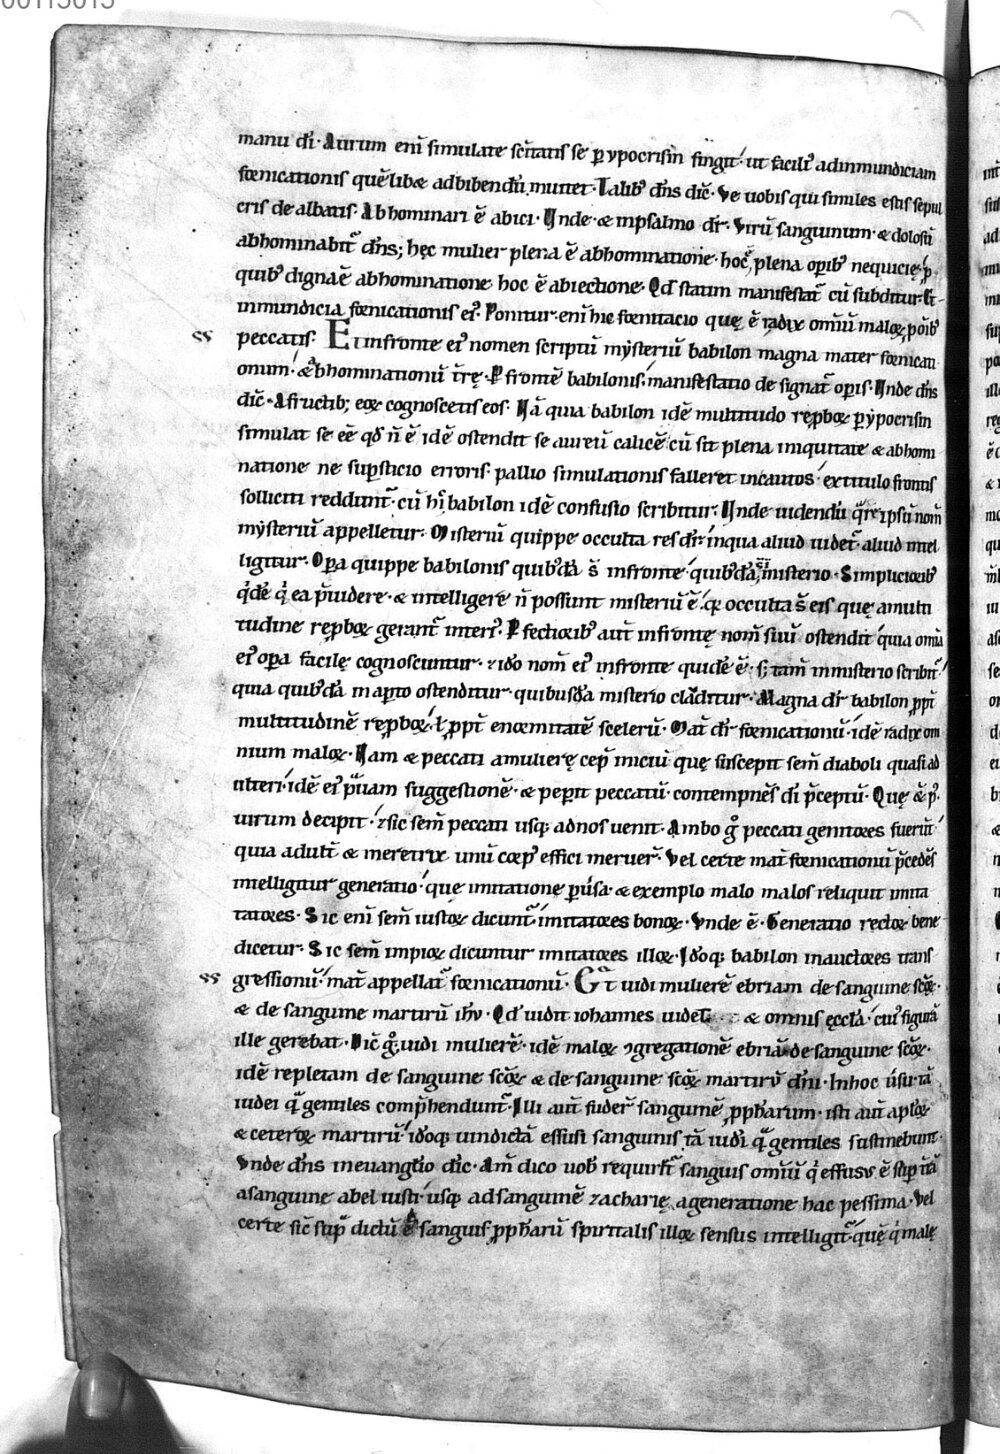 00115015
manu dī· Aurum eni᷃ simulate sc̄itatis se ꝑ ypocrisin fingit· ut facili᷒ adinmundiciam
fornicationis quēlibæ adbibendū mittet· Talib᷒ dn̄s dic̄· Ve uobis qui similes estis sepul
cris de albatis· Abhominari ē abici· Unde· & inpsalmo dr̄· Virū sanguinum· & dolosū
abhominabit᷒ dn̄s; hęc mulier plena ē abhominatione· hoc ē, plena oꝑib᷒ nequicię· ꝓ
quib᷒ digna ē abhominatione hoc ē abiectione· Qd̄ statim manifestat᷒ cū subditur· Et
inmundicia fornicationis ei᷒· Ponitur· eni᷃ hic fornicacio quę ē radix om̄iū maloꝝ, oīb᷒
ss peccatis· Et infronte ei᷒ nomen scriptū mẏsteriū babilon magna mater fornicati
onum· & abhominationū tr̄ę· Ꝑ frontē babilonis· manifestatio de signat᷒ oꝑis· Unde dn̄s
dic̄· A fructib; eoꝝ cognoscetis eos· Nā quia babilon idē multitudo reꝓboꝝ ꝑ ẏpocrisin
simulat se eē qd̄ n̄ ē idē ostendit se aureū calicē cū sit plena iniquitate & abhomi
natione ne suꝑsticio erroris· pallio simulationis falleret incautos· ex titulo frontis
solliciti reddunt᷒· cū hi᷃ babilon idē confusio scribitur· Unde uidendū q̄re ipsū nom̄
mẏsteriū appelletur· Misteriū quippe occulta res dr̄· inqua aliud uidet᷒· aliud intel
ligitur· Oꝑa quippe babilonis quib᷒dā s̄ infronte· quib᷒dā, in misterio· Simpliciorib᷒
q̇dē q̇ ea p̄uidere· & intelligere n̄ possunt misteriū ē· q̄ occulta s̄ eis quę a multi
tudine reꝓboꝝ gerant᷒ interi᷒· Ꝑ fectiorib᷒ aut̄ infrontę nom̄ suū ostendit· quia om̄ia
ei᷒ oꝑa facilę cognoscuntur· ⁊ iđo nom̄ ei᷒ infronte quidē ē· s; tam̄ in misterio scribit᷒·
quia quib᷒dā in aꝑto ostenditur· quibusdā misterio clauditur· Magna dr̄ babilon ꝓpt̄
multitudinē reꝓboꝝ· ł ꝓpt̄ enormitatē scelerū· Mat̄ dr̄ fornicationū· idē radix om
nium maloꝝ· Nam & peccati a muliere cep̄ iniciū· quę suscepit sem̄ diaboli quasi ad
ulteri· idē ei᷒ prauam suggestionē· & peꝑit peccatū· contempnēs dī p̄ceptū· Quę & p᷒
uirum decipit· ⁊ sic sem̄ peccati usq; adnos uenit· Ambo g̊ peccati genitores fuerūt·
quia adult̄ & meretrix unū corp᷒ effici meruer̄· Vel certe mat̄ fornicationū p̄cedēs
intelligitur generatio· que imitatione ꝑuersa· & exemplo malo malos reliquit imita
tatores· Sic eni᷃ sem̄ iustoꝝ dicunt᷒ imitatores bonoꝝ· Vnde ē· Generatio rectoꝝ bene
dicetur· Sic sem̄ impioꝝ dicuntur imitatores illoꝝ· Iđoq; babilon inauctores trans
ss gressionū· mat̄ appellat᷒ fornicationū· Et uidi mulierē ebriam de sanguine sc̄oꝝ·
& de sanguine martirū ih̄u· Qd̄ uidit iohannes uidet & omnis ęccl̄a· cui᷒ figurā
ille gerebat· Dic̄ g̊· uidi mulierē· idē maloꝝ ꝯgregationē ebriā· de sanguine sc̄oꝝ·
idē repletam de sanguine sc̄oꝝ & de sanguine sc̄oꝝ martirū dn̄i· Inhoc uersu tā
iudei quā gentiles comp̄hendunt᷒· Illi aut̄ fuder̄ sanguinē ꝓph̄arum· isti aut̄ apl̄oꝝ
& ceteroꝝ martirū· iđoq; uindictā effusi sanguinis tā iudi᷃ quā gentiles sustinebunt·
Vnde dn̄s in euangl̄io dic̄· Am̄ dico uob᷒ requiret᷒ sanguis om̄iū q̇ effusus ē suꝑ tr̄ā
asanguine abel iusti· usq; ad sanguinē zacharię, a generatione hac pessima· Vel
certe sic̄ suꝑ᷒ dictū ē sanguis ꝓph̄arū spiritalis illoꝝ sensus intelligit᷒· quę q̇ malę